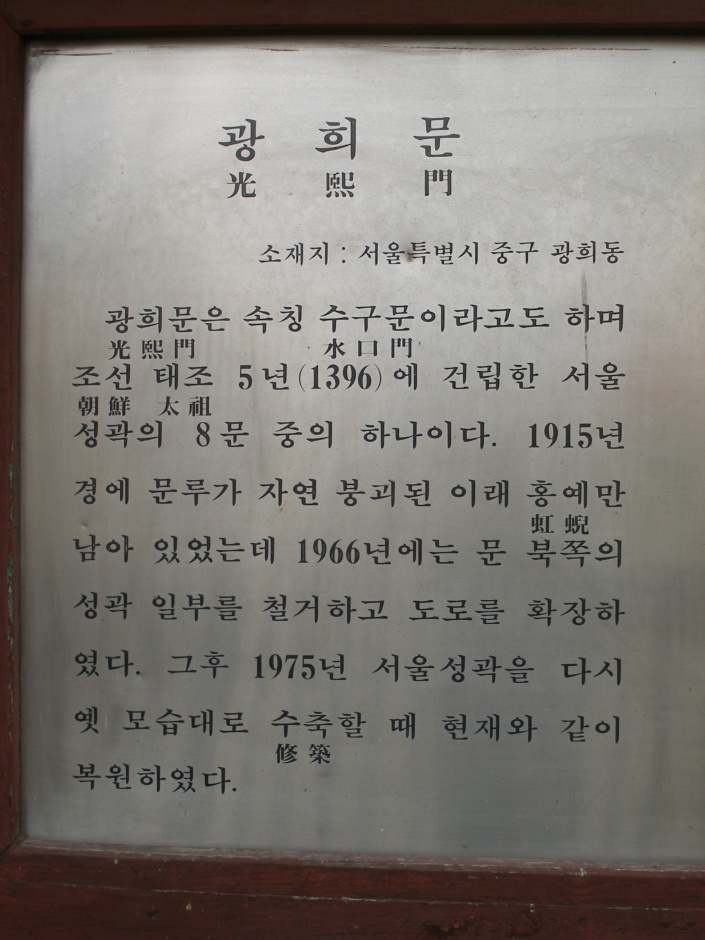 광 희 문
光 熙 門
소재지 : 서울특별시 중구 광희동
광희문은 속칭 수구문이라고도 하며
光熙門 水口門
조선 태조 5년(1396)에 건립한 서울
朝鮮 太祖
성곽의 8문 중의 하나이다. 1915년
경에 문루가 자연 붕괴된 이래 홍예만
虹蜺
남아 있었는데 1966년에는 문 북쪽의
성곽 일부를 철거하고 도로를 확장하
였다. 그후 1975년 서울성곽을 다시
옛 모습대로 수축할 때 현재와 같이
修築
복원하였다.